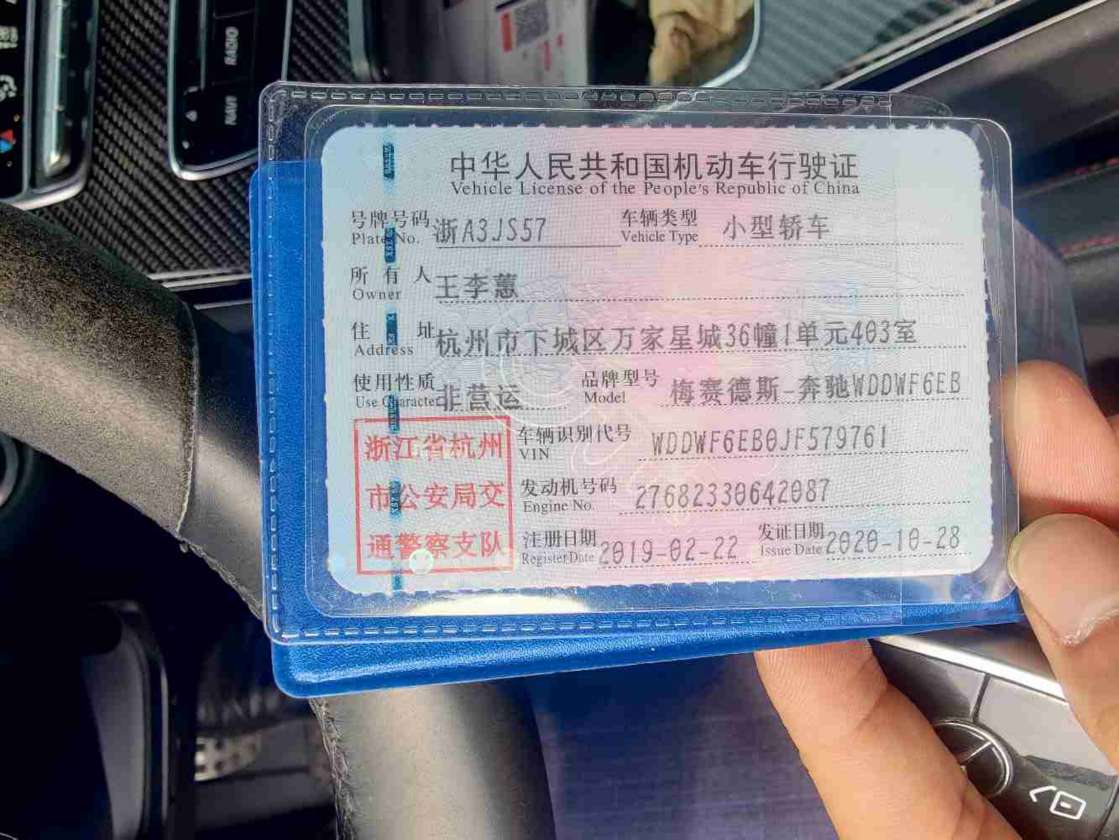 RADIO
NAVI
中华人民共和国机动车行驶证
Vehicle License of the People's Republic of China
号牌号码 浙A3JS57 车辆类型 小型轿车
Plate No. Vehicle Type
所有人 王李蕙
Owner
住址 杭州市下城区万家星城36幢1单元403室
Address
使用性质 非营运 品牌型号 梅赛德斯-奔驰WDDWF6EB
Use Character Model
浙江省杭州 车辆识别代号 WDDWF6EB0JF579761
VIN
市公安局交 发动机号码 27682330642087
Engine No.
通警察支队 注册日期 2019-02-22 发证日期 2020-10-28
Register Date Issue Date